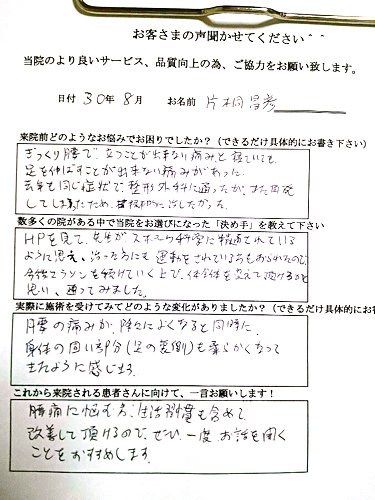 お客さまの声聞かせてください＾＾
当院のより良いサービス、品質向上の為、ご協力をお願い致します。
日付 30年8月 お名前 片桐昌彦
来院前どのようなお悩みでお困りでしたか？（できるだけ具体的にお書き下さい）
ぎっくり腰で、立つことが出来ない痛みと寝ていても
足を伸ばすことが出来ない痛みがあった。
去年も同じ症状で、整形外科に通ったが、また再発
してしまったため、根本的に治したかった。
数多くの院がある中で当院をお選びになった「決め手」を教えて下さい
HPを見て、先生がスポーツ科学に精通されている
ように思え、治ったあとにも運動をされている方もおられたので、
今後マラソンを続けていく上で、体全体を支えて頂けるかと
思い、通ってみました。
実際に施術を受けてみてどのような変化がありましたか？（できるだけ具体的にお書
腰の痛みが、除々によくなると同時に、
身体の固い部分（足の裏側）も柔らかくなって
きたように感じます。
これから来院される患者さんに向けて、一言お願いします！
腰痛に悩む方、生活習慣も含めて
改善して頂けるので、ぜひ一度お話を聞く
ことをおすすめします。